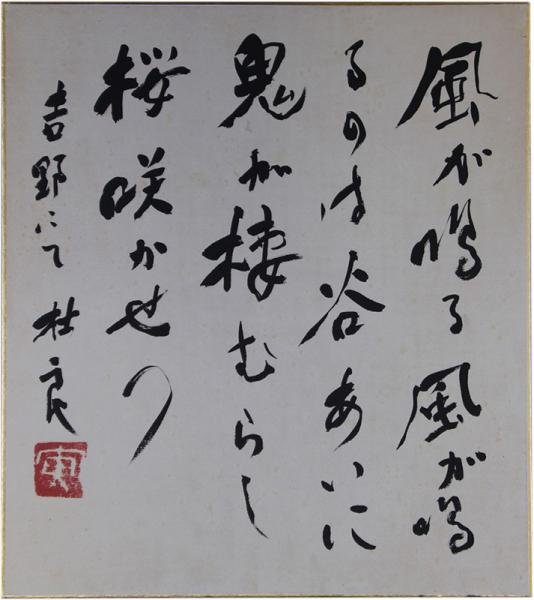 風が鳴る風が鳴
るのは谷あいに
鬼が棲むらし
桜咲かせつ
吉野にて 杜良